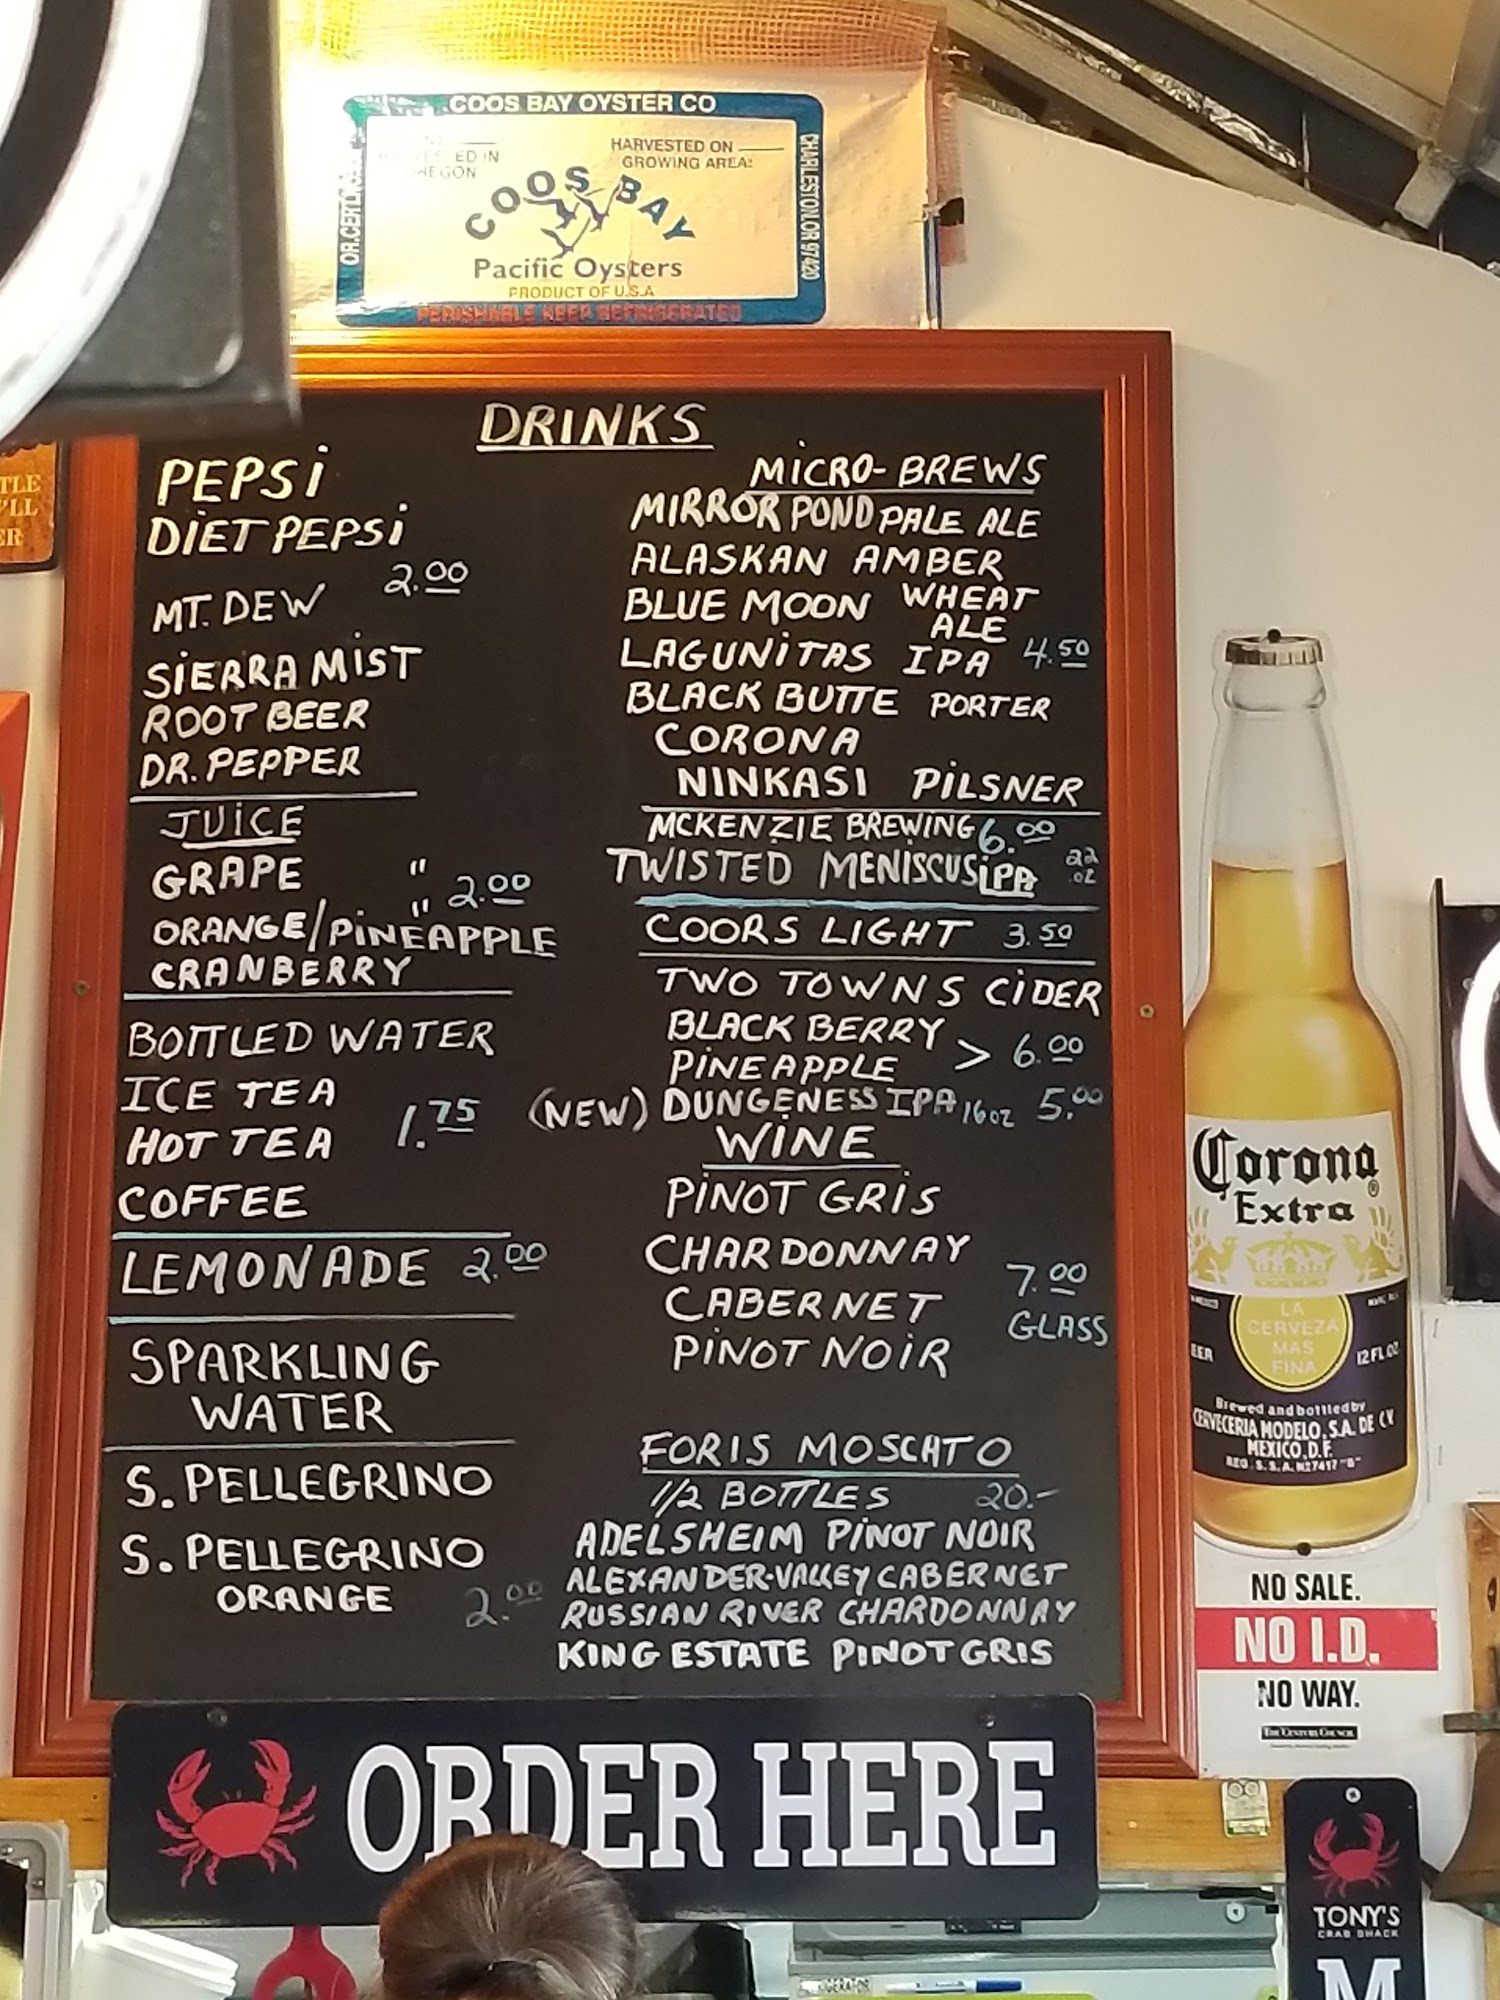 COOS BAY OYSTER CO
HARVESTED ON
GROWING AREA:
OR.CERT.
CHARLESTON, OR 97420
COOS BAY
Pacific Oysters
PRODUCT OF U.S.A
PERISHABLE KEEP REFRIGERATED
DRINKS
PEPSi
DIET PEPSi
2.00
MT. DEW
SiERRA MiST
ROOT BEER
DR. PEPPER
JUiCE
GRAPE "
2.00
ORANGE/PiNEAPPLE "
CRANBERRY
BOTTLED WATER
ICE TEA
HOT TEA 1.75
COFFEE
LEMONADE 2.00
SPARKLING
WATER
S. PELLEGRINO
S. PELLEGRINO
ORANGE 2.00
MiCRO-BREWS
MIRROR POND PALE ALE
ALASKAN AMBER
BLUE MOON WHEAT
ALE
LAGUNiTAS IPA 4.50
BLACK BUTTE PORTER
CORONA
NINKASI PiLSNER
MCKENZIE BREWING 6.00
TWISTED MENISCUS iPA 22 oz
COORS LIGHT 3.50
TWO TOWNS CiDER
BLACK BERRY
PiNEAPPLE > 6.00
(NEW) DUNGENESS IPA 16oz 5.00
WINE
PiNOT GRiS
CHARDONNAY
7.00
CABERNET
GLASS
PiNOT NOiR
FORIS MOSCATO
1/2 BOTTLES 20.-
ADELSHEIM PINOT NOIR
ALEXANDER-VALLEY CABERNET
RUSSIAN RIVER CHARDONNAY
KING ESTATE PINOT GRIS
ORDER HERE
Corona
Extra
LA
CERVEZA
MAS
FINA
12 FL OZ
Brewed and bottled by
CERVECERIA MODELO, S.A. DE C.V.
MEXICO, D.F.
REG. S.S.A. Nº7417 "B"
NO SALE.
NO I.D.
NO WAY.
THE CENTURY COUNCIL
TONY'S
CRAB SHACK
M